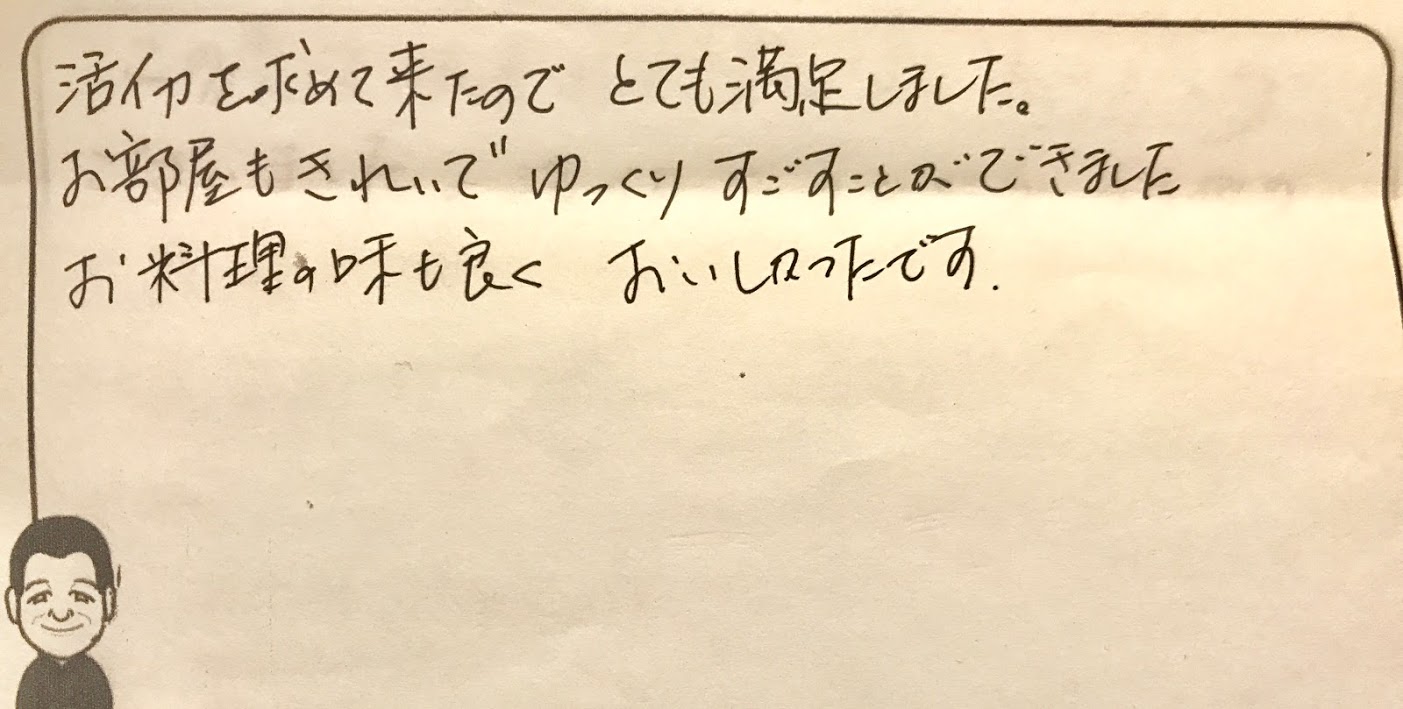 活イカを求めて来たので とても満足しました。
お部屋もきれいで ゆっくり すごすことができました
お料理の味も良く おいしかったです.